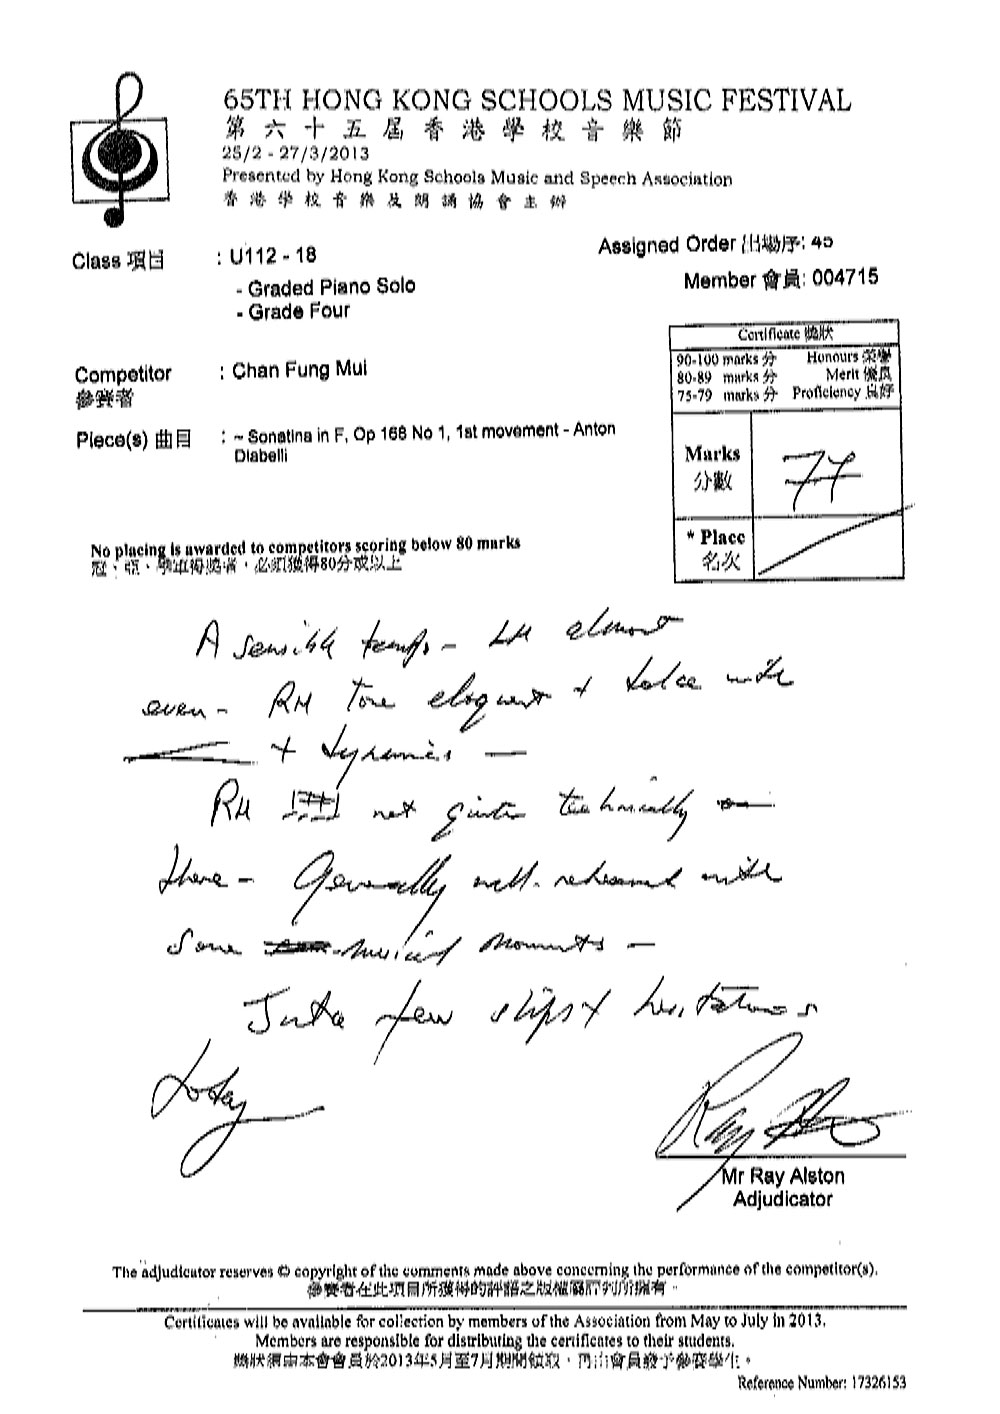 65TH HONG KONG SCHOOLS MUSIC FESTIVAL
第六十五屆香港學校音樂節
25/2 - 27/3/2013
Presented by Hong Kong Schools Music and Speech Association
香港學校音樂及朗誦協會主辦
Class 項目 : U112 - 18
- Graded Piano Solo
- Grade Four
Assigned Order 出場序: 45
Member 會員: 004715
Competitor : Chan Fung Mui
參賽者
Piece(s) 曲目 : ~ Sonatina in F, Op 168 No 1, 1st movement - Anton
Diabelli
Certificate 獎狀
90-100 marks 分 Honours 榮譽
80-89 marks 分 Merit 優良
75-79 marks 分 Proficiency 良好
Marks 77
分數
* Place
名次
No placing is awarded to competitors scoring below 80 marks
冠、亞、季軍得獎者，必須獲得80分或以上
A sensible tempo - LH almost
even - RH Tone eloquent + dolce with
+ dynamics -
RH not quite technically
there - Generally well-rehearsed with
some musical moments -
Just a few slips + hesitations
today
Mr Ray Alston
Adjudicator
The adjudicator reserves © copyright of the comments made above concerning the performance of the competitor(s).
參賽者在此項目所獲得的評語之版權屬評判所擁有。
Certificates will be available for collection by members of the Association from May to July in 2013.
Members are responsible for distributing the certificates to their students.
獎狀須由本會會員於2013年5月至7月期間領取，再由會員發予參賽學生。
Reference Number: 17326153